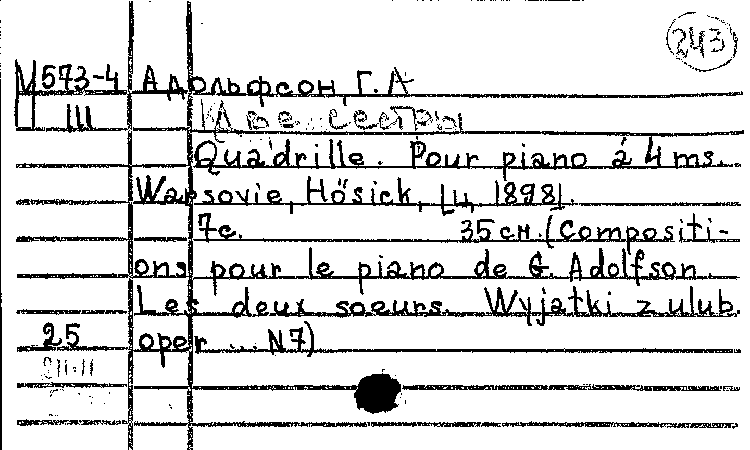 243
М 573-4 Адольфсон, Г. А
III [Две сестры
Quadrille. Pour piano à 4 ms.
Warsovie, Hösick, [ц. 1898].
7с. 35 см. (Compositi-
ons pour le piano de G. Adolfson.
Les deux soeurs. Wyjatki z ulub.
25 oper ... N7)